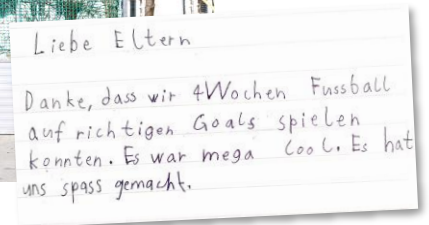 Liebe Eltern
Danke, dass wir 4Wochen Fussball
auf richtigen Goals spielen
konnten. Es war mega cool. Es hat
uns spass gemacht.